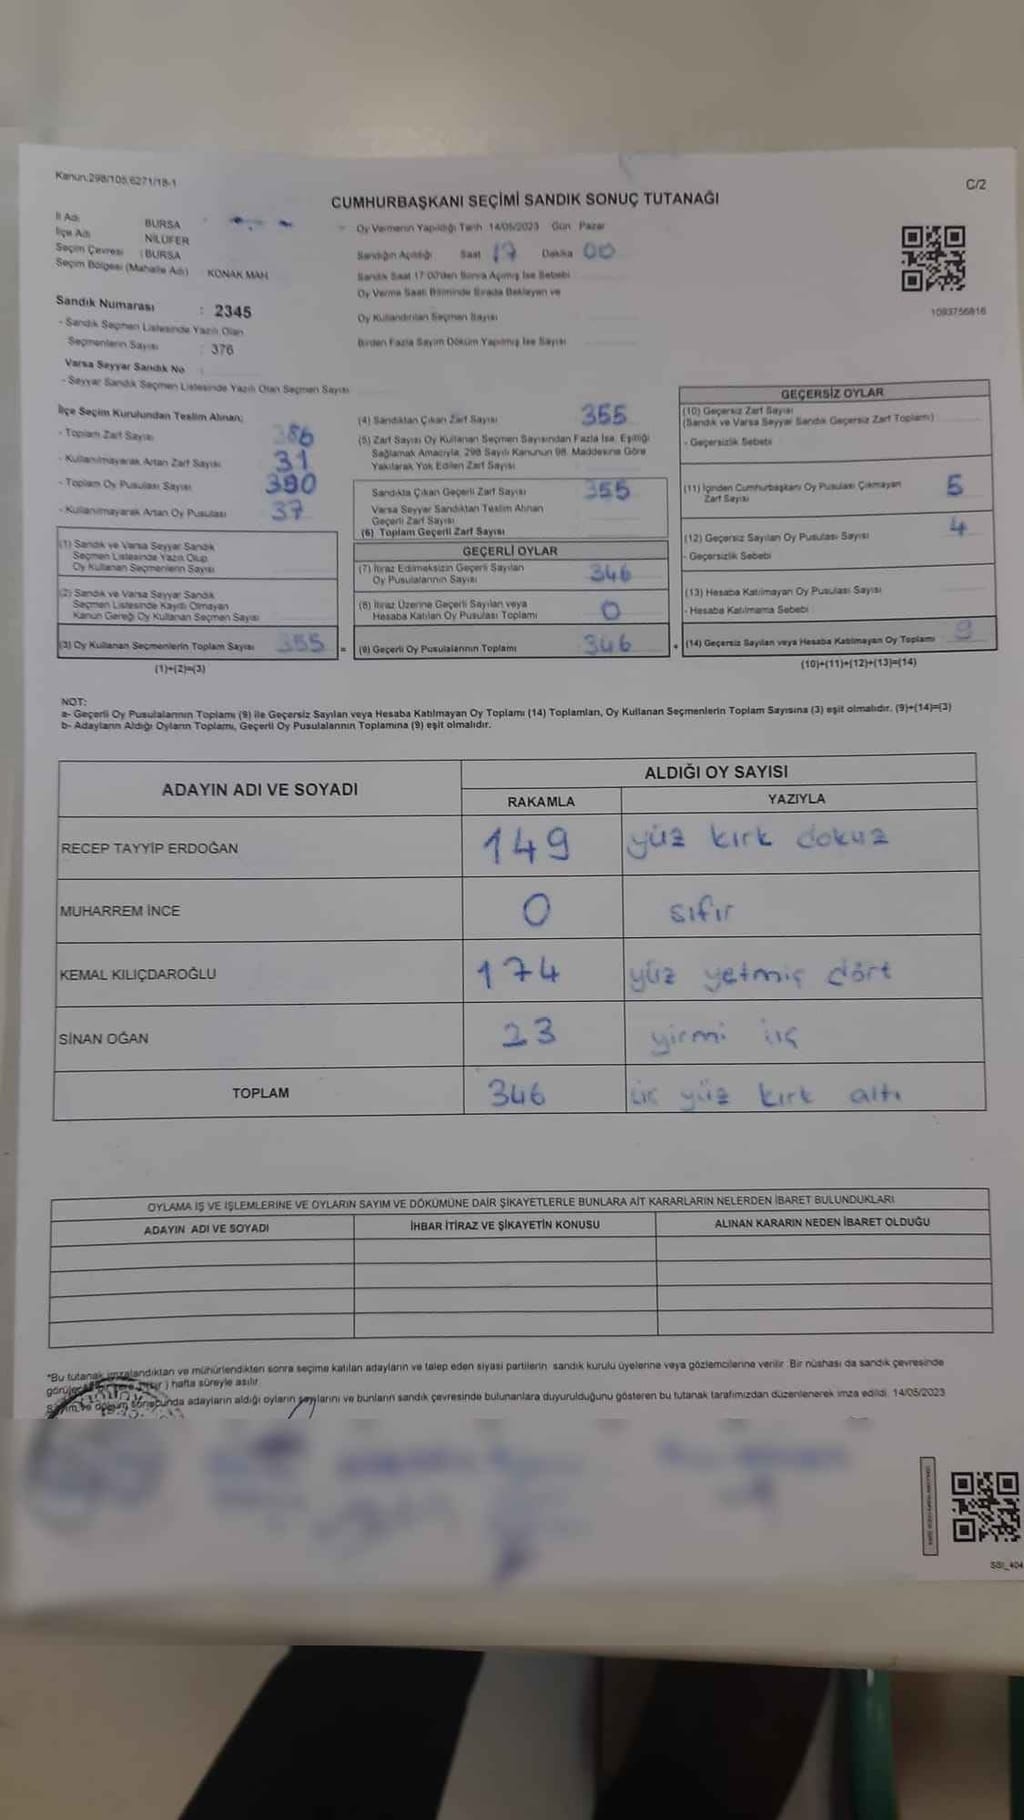 Kanun:298/105,6271/18-1
C/2
CUMHURBAŞKANI SEÇİMİ SANDIK SONUÇ TUTANAĞI
İl Adı BURSA
İlçe Adı NİLÜFER
Seçim Çevresi : BURSA
Seçim Bölgesi (Mahalle Adı) KONAK MAH
Sandık Numarası : 2345
- Sandık Seçmen Listesinde Yazılı Olan
Seçmenlerin Sayısı : 376
Varsa Seyyar Sandık No
- Seyyar Sandık Seçmen Listesinde Yazılı Olan Seçmen Sayısı
Oy Vermenin Yapıldığı Tarih 14/05/2023 Gün Pazar
Sandığın Açıldığı Saat 17 Dakika 00
Sandık Saat 17:00'den Sonra Açılmış İse Sebebi
Oy Verme Saati Bitiminde Sırada Bekleyen ve
Oy Kullandırılan Seçmen Sayısı
Birden Fazla Sayım Döküm Yapılmış İse Sayısı
1093756816
İlçe Seçim Kurulundan Teslim Alınan;
- Toplam Zarf Sayısı 386
- Kullanılmayarak Artan Zarf Sayısı 31
- Toplam Oy Pusulası Sayısı 390
- Kullanılmayarak Artan Oy Pusulası 37
(1) Sandık ve Varsa Seyyar Sandık
Seçmen Listesinde Yazılı Olup
Oy Kullanan Seçmenlerin Sayısı
(2) Sandık ve Varsa Seyyar Sandık
Seçmen Listesinde Kayıtlı Olmayan
Kanun Gereği Oy Kullanan Seçmen Sayısı
(3) Oy Kullanan Seçmenlerin Toplam Sayısı 355 =
(1)+(2)=(3)
(4) Sandıktan Çıkan Zarf Sayısı 355
(5) Zarf Sayısı Oy Kullanan Seçmen Sayısından Fazla İse, Eşitliği
Sağlamak Amacıyla, 298 Sayılı Kanunun 98. Maddesine Göre
Yakılarak Yok Edilen Zarf Sayısı
Sandıkta Çıkan Geçerli Zarf Sayısı 355
Varsa Seyyar Sandıktan Teslim Alınan
Geçerli Zarf Sayısı
(6) Toplam Geçerli Zarf Sayısı
GEÇERLİ OYLAR
(7) İtiraz Edilmeksizin Geçerli Sayılan
Oy Pusulalarının Sayısı 346
(8) İtiraz Üzerine Geçerli Sayılan veya
Hesaba Katılan Oy Pusulası Toplamı 0
(9) Geçerli Oy Pusulalarının Toplamı 346 +
GEÇERSİZ OYLAR
(10) Geçersiz Zarf Sayısı
(Sandık ve Varsa Seyyar Sandık Geçersiz Zarf Toplamı)
- Geçersizlik Sebebi
(11) İçinden Cumhurbaşkanı Oy Pusulası Çıkmayan
Zarf Sayısı 5
(12) Geçersiz Sayılan Oy Pusulası Sayısı 4
- Geçersizlik Sebebi
(13) Hesaba Katılmayan Oy Pusulası Sayısı
- Hesaba Katılmama Sebebi
(14) Geçersiz Sayılan veya Hesaba Katılmayan Oy Toplamı 9
(10)+(11)+(12)+(13)=(14)
NOT:
a- Geçerli Oy Pusulalarının Toplamı (9) ile Geçersiz Sayılan veya Hesaba Katılmayan Oy Toplamı (14) Toplamları, Oy Kullanan Seçmenlerin Toplam Sayısına (3) eşit olmalıdır. (9)+(14)=(3)
b- Adayların Aldığı Oyların Toplamı, Geçerli Oy Pusulalarının Toplamına (9) eşit olmalıdır.
ADAYIN ADI VE SOYADI ALDIĞI OY SAYISI
RAKAMLA YAZIYLA
RECEP TAYYİP ERDOĞAN 149 yüz kırk dokuz
MUHARREM İNCE 0 sıfır
KEMAL KILIÇDAROĞLU 174 yüz yetmiş dört
SİNAN OĞAN 23 yirmi üç
TOPLAM 346 üç yüz kırk altı
OYLAMA İŞ VE İŞLEMLERİNE VE OYLARIN SAYIM VE DÖKÜMÜNE DAİR ŞİKAYETLERLE BUNLARA AİT KARARLARIN NELERDEN İBARET BULUNDUKLARI
ADAYIN ADI VE SOYADI İHBAR İTİRAZ VE ŞİKAYETİN KONUSU ALINAN KARARIN NEDEN İBARET OLDUĞU
*Bu tutanak imzalandıktan ve mühürlendikten sonra seçime katılan adayların ve talep eden siyasi partilerin sandık kurulu üyelerine veya gözlemcilerine verilir. Bir nüshası da sandık çevresinde
hafta süreyle asılır.
adayların aldığı oyların sayılarını ve bunların sandık çevresinde bulunanlara duyurulduğunu gösteren bu tutanak tarafımızdan düzenlenerek imza edildi. 14/05/2023